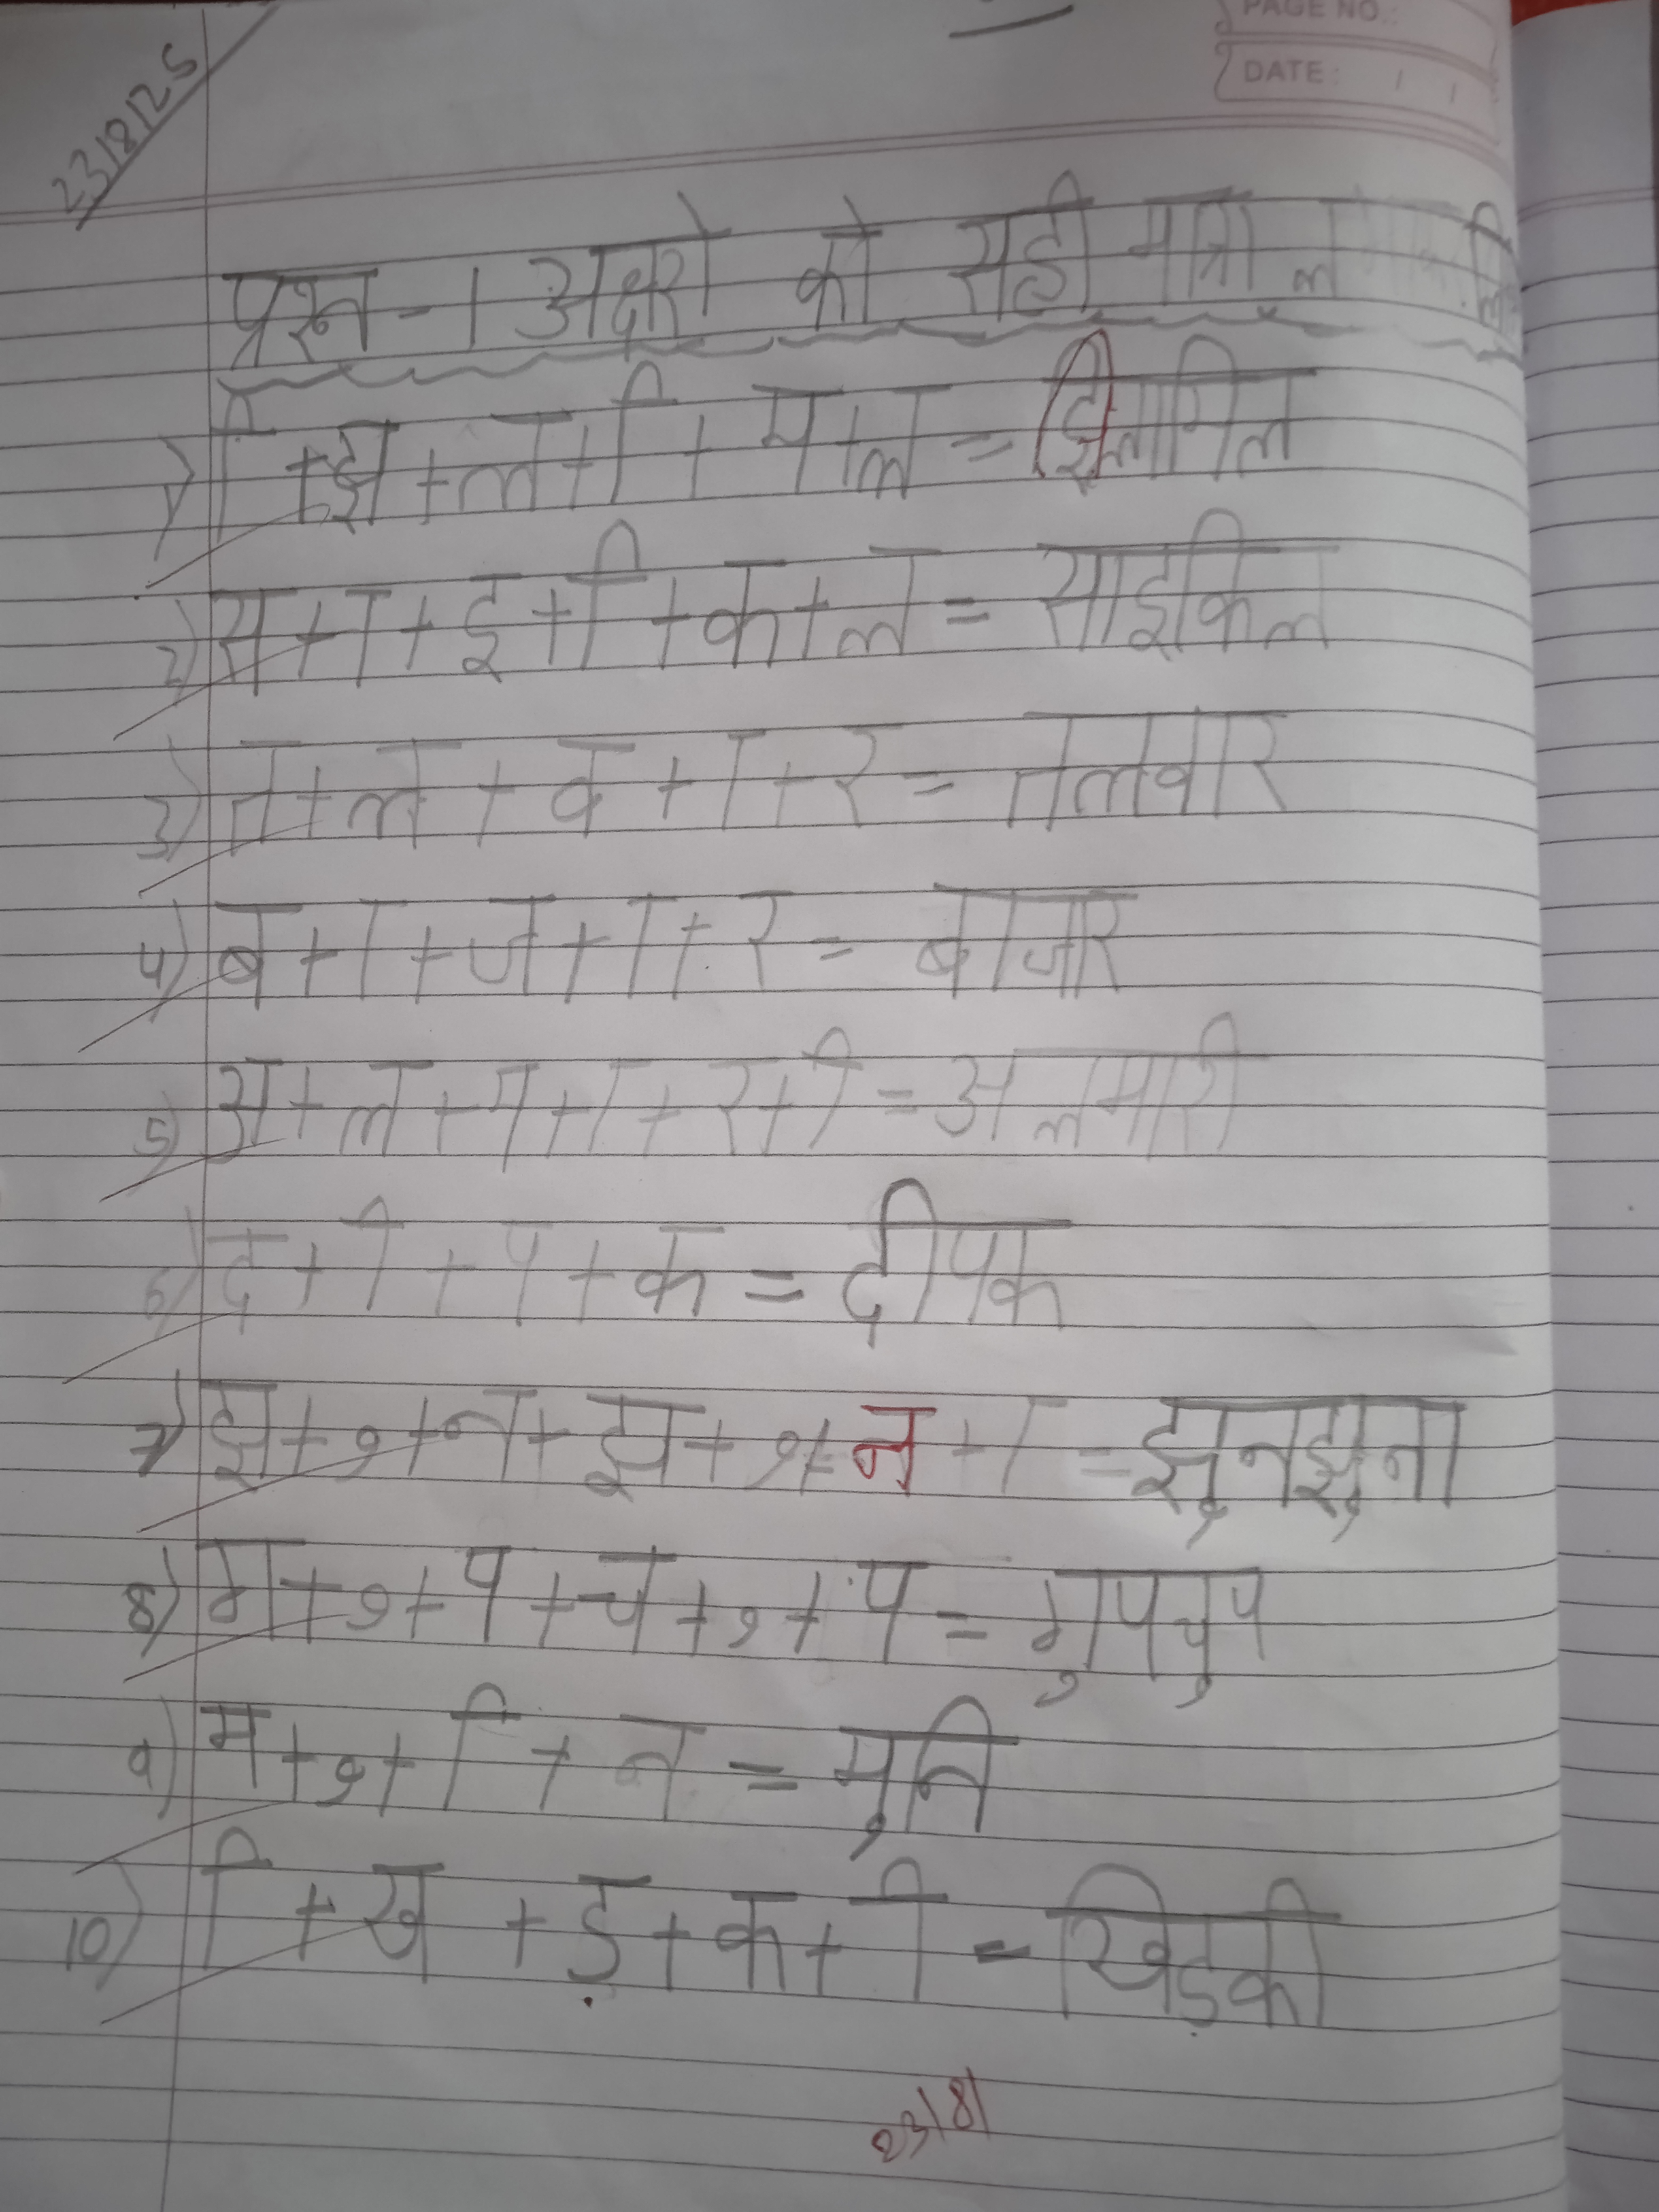 PAGE NO.:
DATE: / /
23/8/25
प्रश्न-1 अक्षरो को सही मात्रा
1) ि+झ+ल+ि+म+ल=झिलमिल
2) स+ा+इ+ि+क+ल=साइकिल
3) त+ल+व+ा+र=तलवार
4) ब+ा+ज+ा+र=बाजार
5) अ+ल+म+ा+र+ी=अलमारी
6) द+ी+प+क=दीपक
7) झ+ु+न+झ+ु+न+ा=झुनझुना
8) ग+ु+प+च+ु+प=गुपचुप
9) म+ु+ि+न=मुनि
10) ि+ख+ड़+क+ी=खिड़की
23/8/